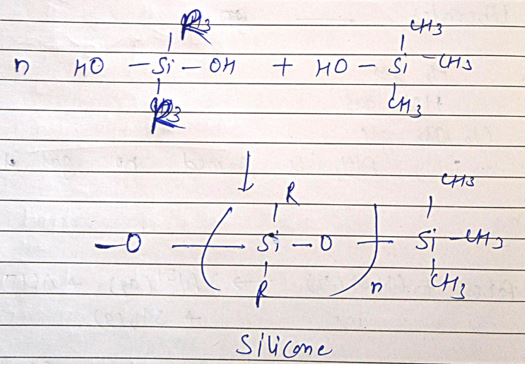 R
CH3
n HO - Si - OH + HO - Si - CH3
CH3
R
↓
R
CH3
-O - ( Si - O )n - Si - CH3
R
CH3
Silicone